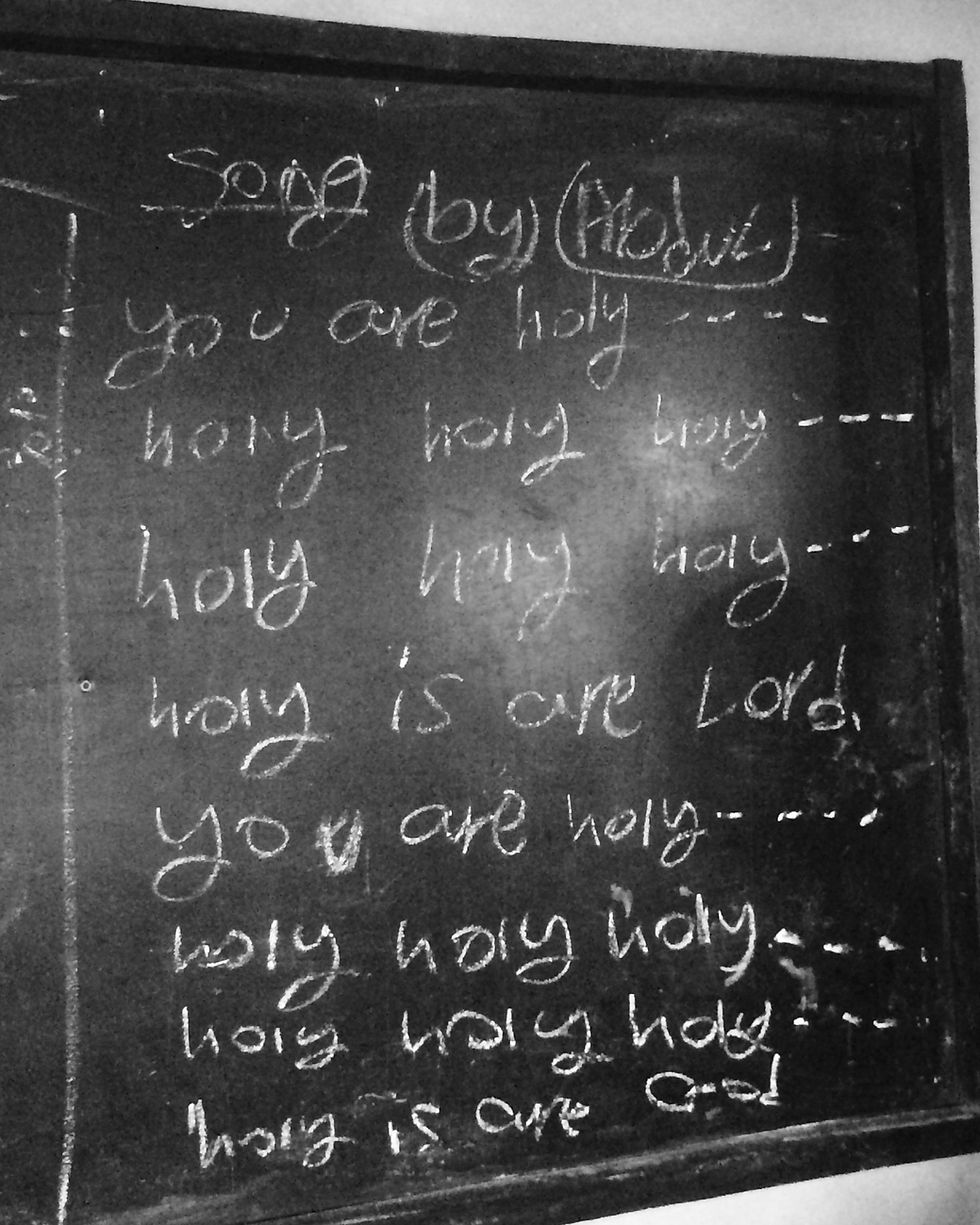 Song (by)
you are holy - - - -
holy holy holy - - -
holy holy holy - - -
holy is are Lord.
you are holy - - - -
holy holy holy - - - -
holy holy holy - - -
holy is are God